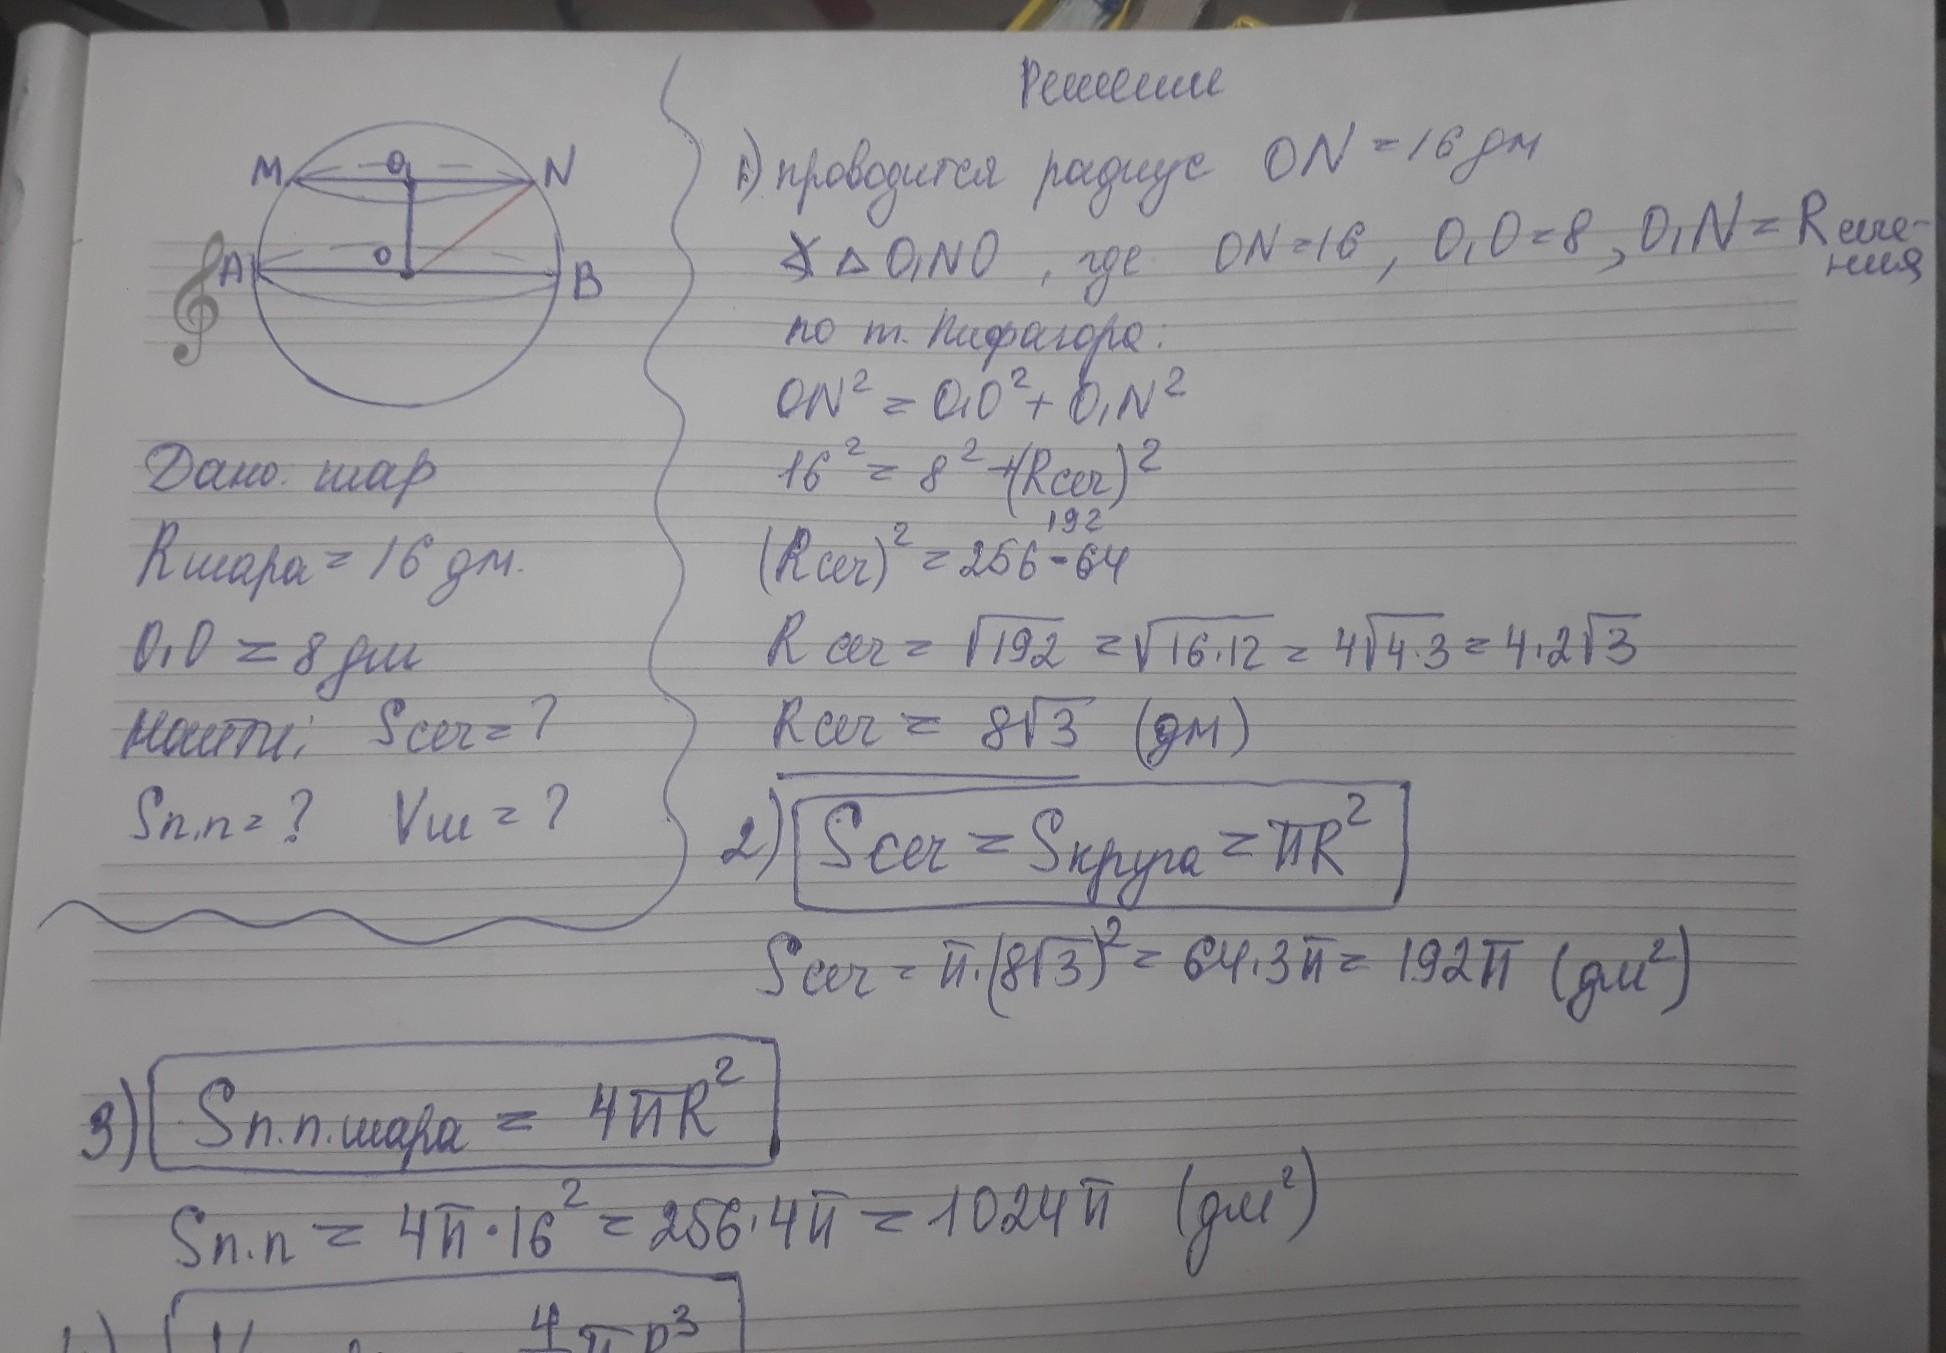 M O₁ N
A O B
Дано: шар
Rшара = 16 дм.
O₁O = 8 дм
Найти: Sсеч = ?
Sп.п = ? Vш = ?
Решение
1) проводится радиус ON = 16 дм
△ O₁NO, где ON = 16, O₁O = 8, O₁N = R сече-
ния
по т. Пифагора:
ON² = O₁O² + O₁N²
16² = 8² + (Rсеч)²
192
(Rсеч)² = 256 - 64
R сеч = √192 = √16·12 = 4√4·3 = 4·2√3
R сеч = 8√3 (дм)
2) Sсеч = Sкруга = πR²
Sсеч = π·(8√3)² = 64·3π = 192π (дм²)
3) Sп.п.шара = 4πR²
Sп.п = 4π·16² = 256·4π = 1024π (дм²)
4/ πR³